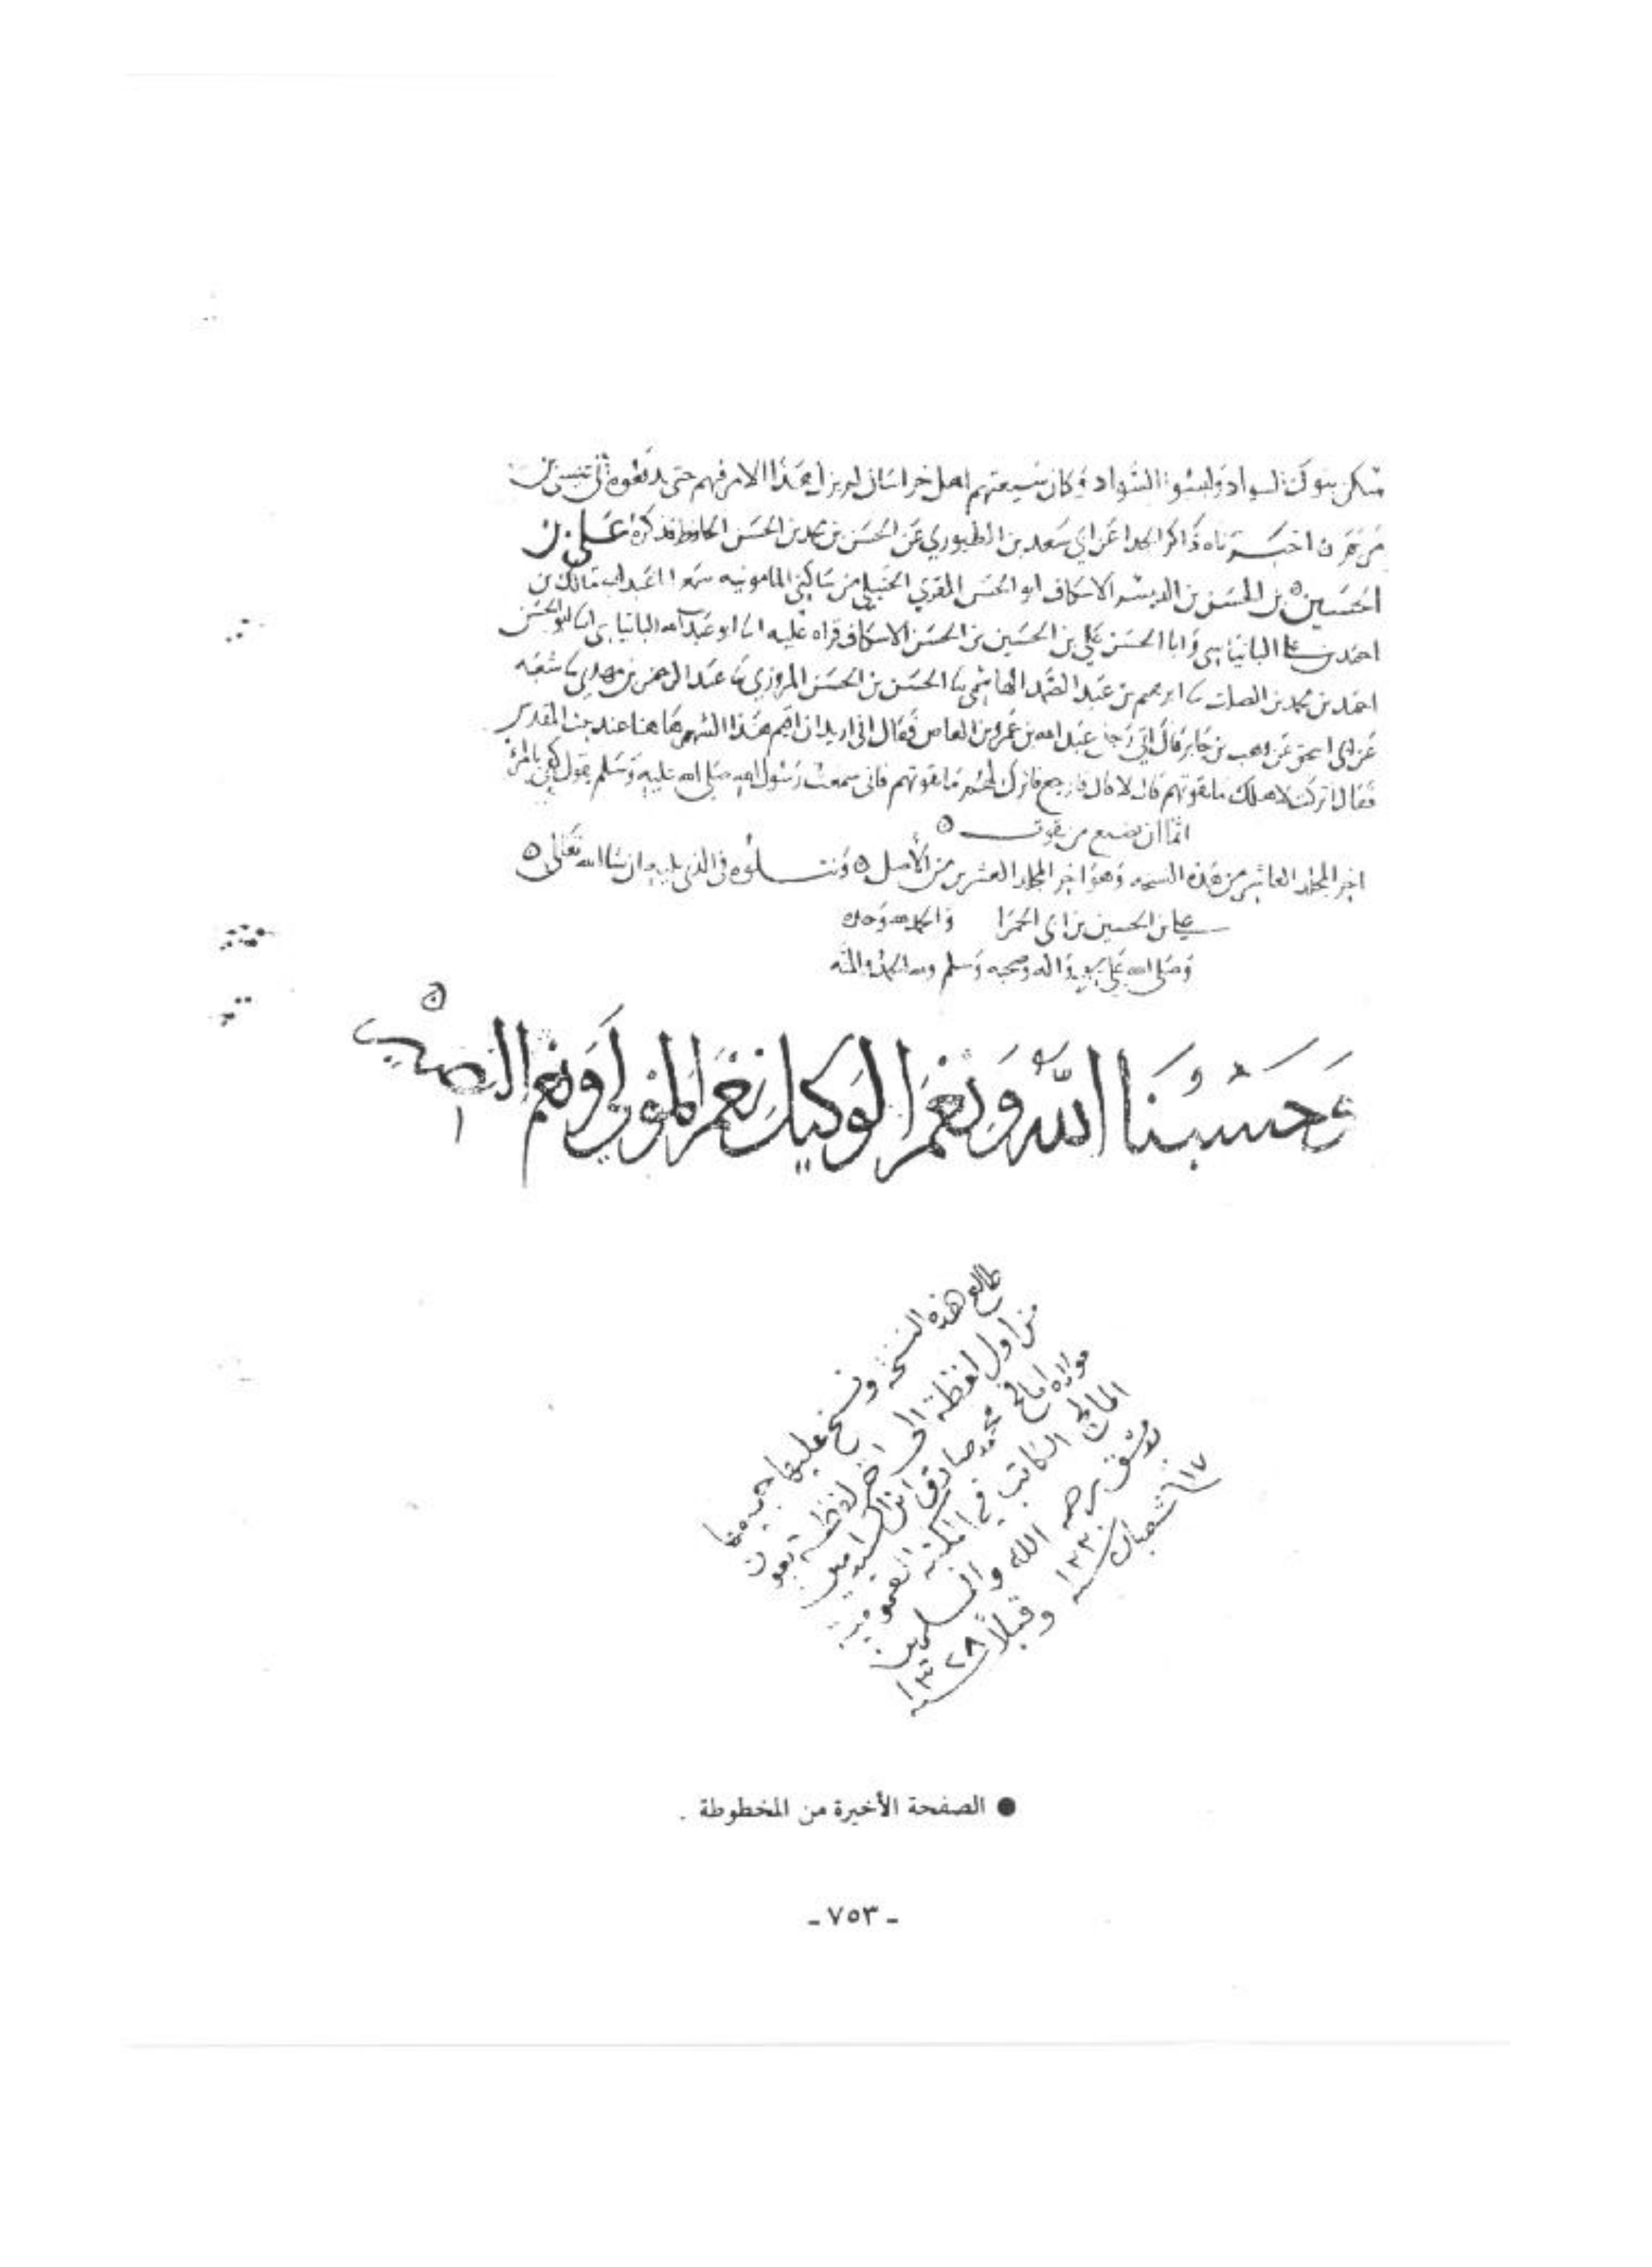 بنوك السواد ولبسوا السواد وكان شيعتهم اهل خراسان لم يزل هذا الامر فيهم حتى يدفعوه الى
اخبرناه ذاكر الحذا عن ابي سعد بن الطيوري عن الحسن بن محمد بن الحسن الحافظ قد كره علي بن
الحسين بن الحسن بن الاسكاف ابو الحسن المقري الحنبلي من ساكني المامونيه سمع ابا عبد الله مالك بن
احمد بن علي البانياسي وابا الحسن علي بن الحسين بن الحسن الاسكاف قراه عليه انا ابو عبد الله البانياسي انا ابو الحسن
احمد بن محمد بن الصلت نا ابرهيم بن عبد الصمد الهاشمي نا الحسن بن الحسن المروزي نا عبد الرحمن بن مهدي نا شعبه
عن ابي اسحق عن وهب بن جابر قال اتى رجل عبد الله بن عمرو بن العاص فقال اني اريد ان اقيم هذا الشهر هاهنا عند بيت المقدس
فقال تركت لاهلك ما يقوتهم قال لا قال فارجع فاترك لهم ما يقوتهم فاني سمعت رسول الله صلى الله عليه وسلم يقول كفى بالمرء
اثما ان يضيع من يقوت
اخر المجلد العاشر من هذه النسخه وهو اخر المجلد العشرين من الاصل ونتلوه في الذي يليه ان شا الله تعالى
علي بن الحسين بن ابي الحمرا والحمد لله وحده
وصلى الله على واله وصحبه وسلم ولله الحمد والمنه
وَحَسْبُنَا اللَّهُ وَنِعْمَ الوَكيل نِعْمَ المَوْلَى وَنِعْمَ النصير
طالع هذه النسخة ونسخ عليها جميعها
من اول لفظة الى اخر لفظة بعون
مولاه محمد صادق ابن السيد امين
المالح الكاتب في المكتبة العمومية
بدمشق يرحمه الله والمسلمين
١٧ شعبان سنة ١٣٣٠ وقبلاً سنة ١٣٢٨
● الصفحة الأخيرة من المخطوطة .
- ٧٥٣ -